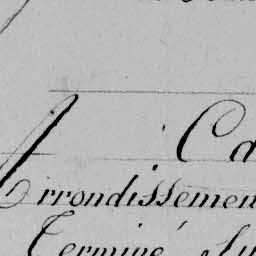 Ca
Arrondissemen
Terminé Su